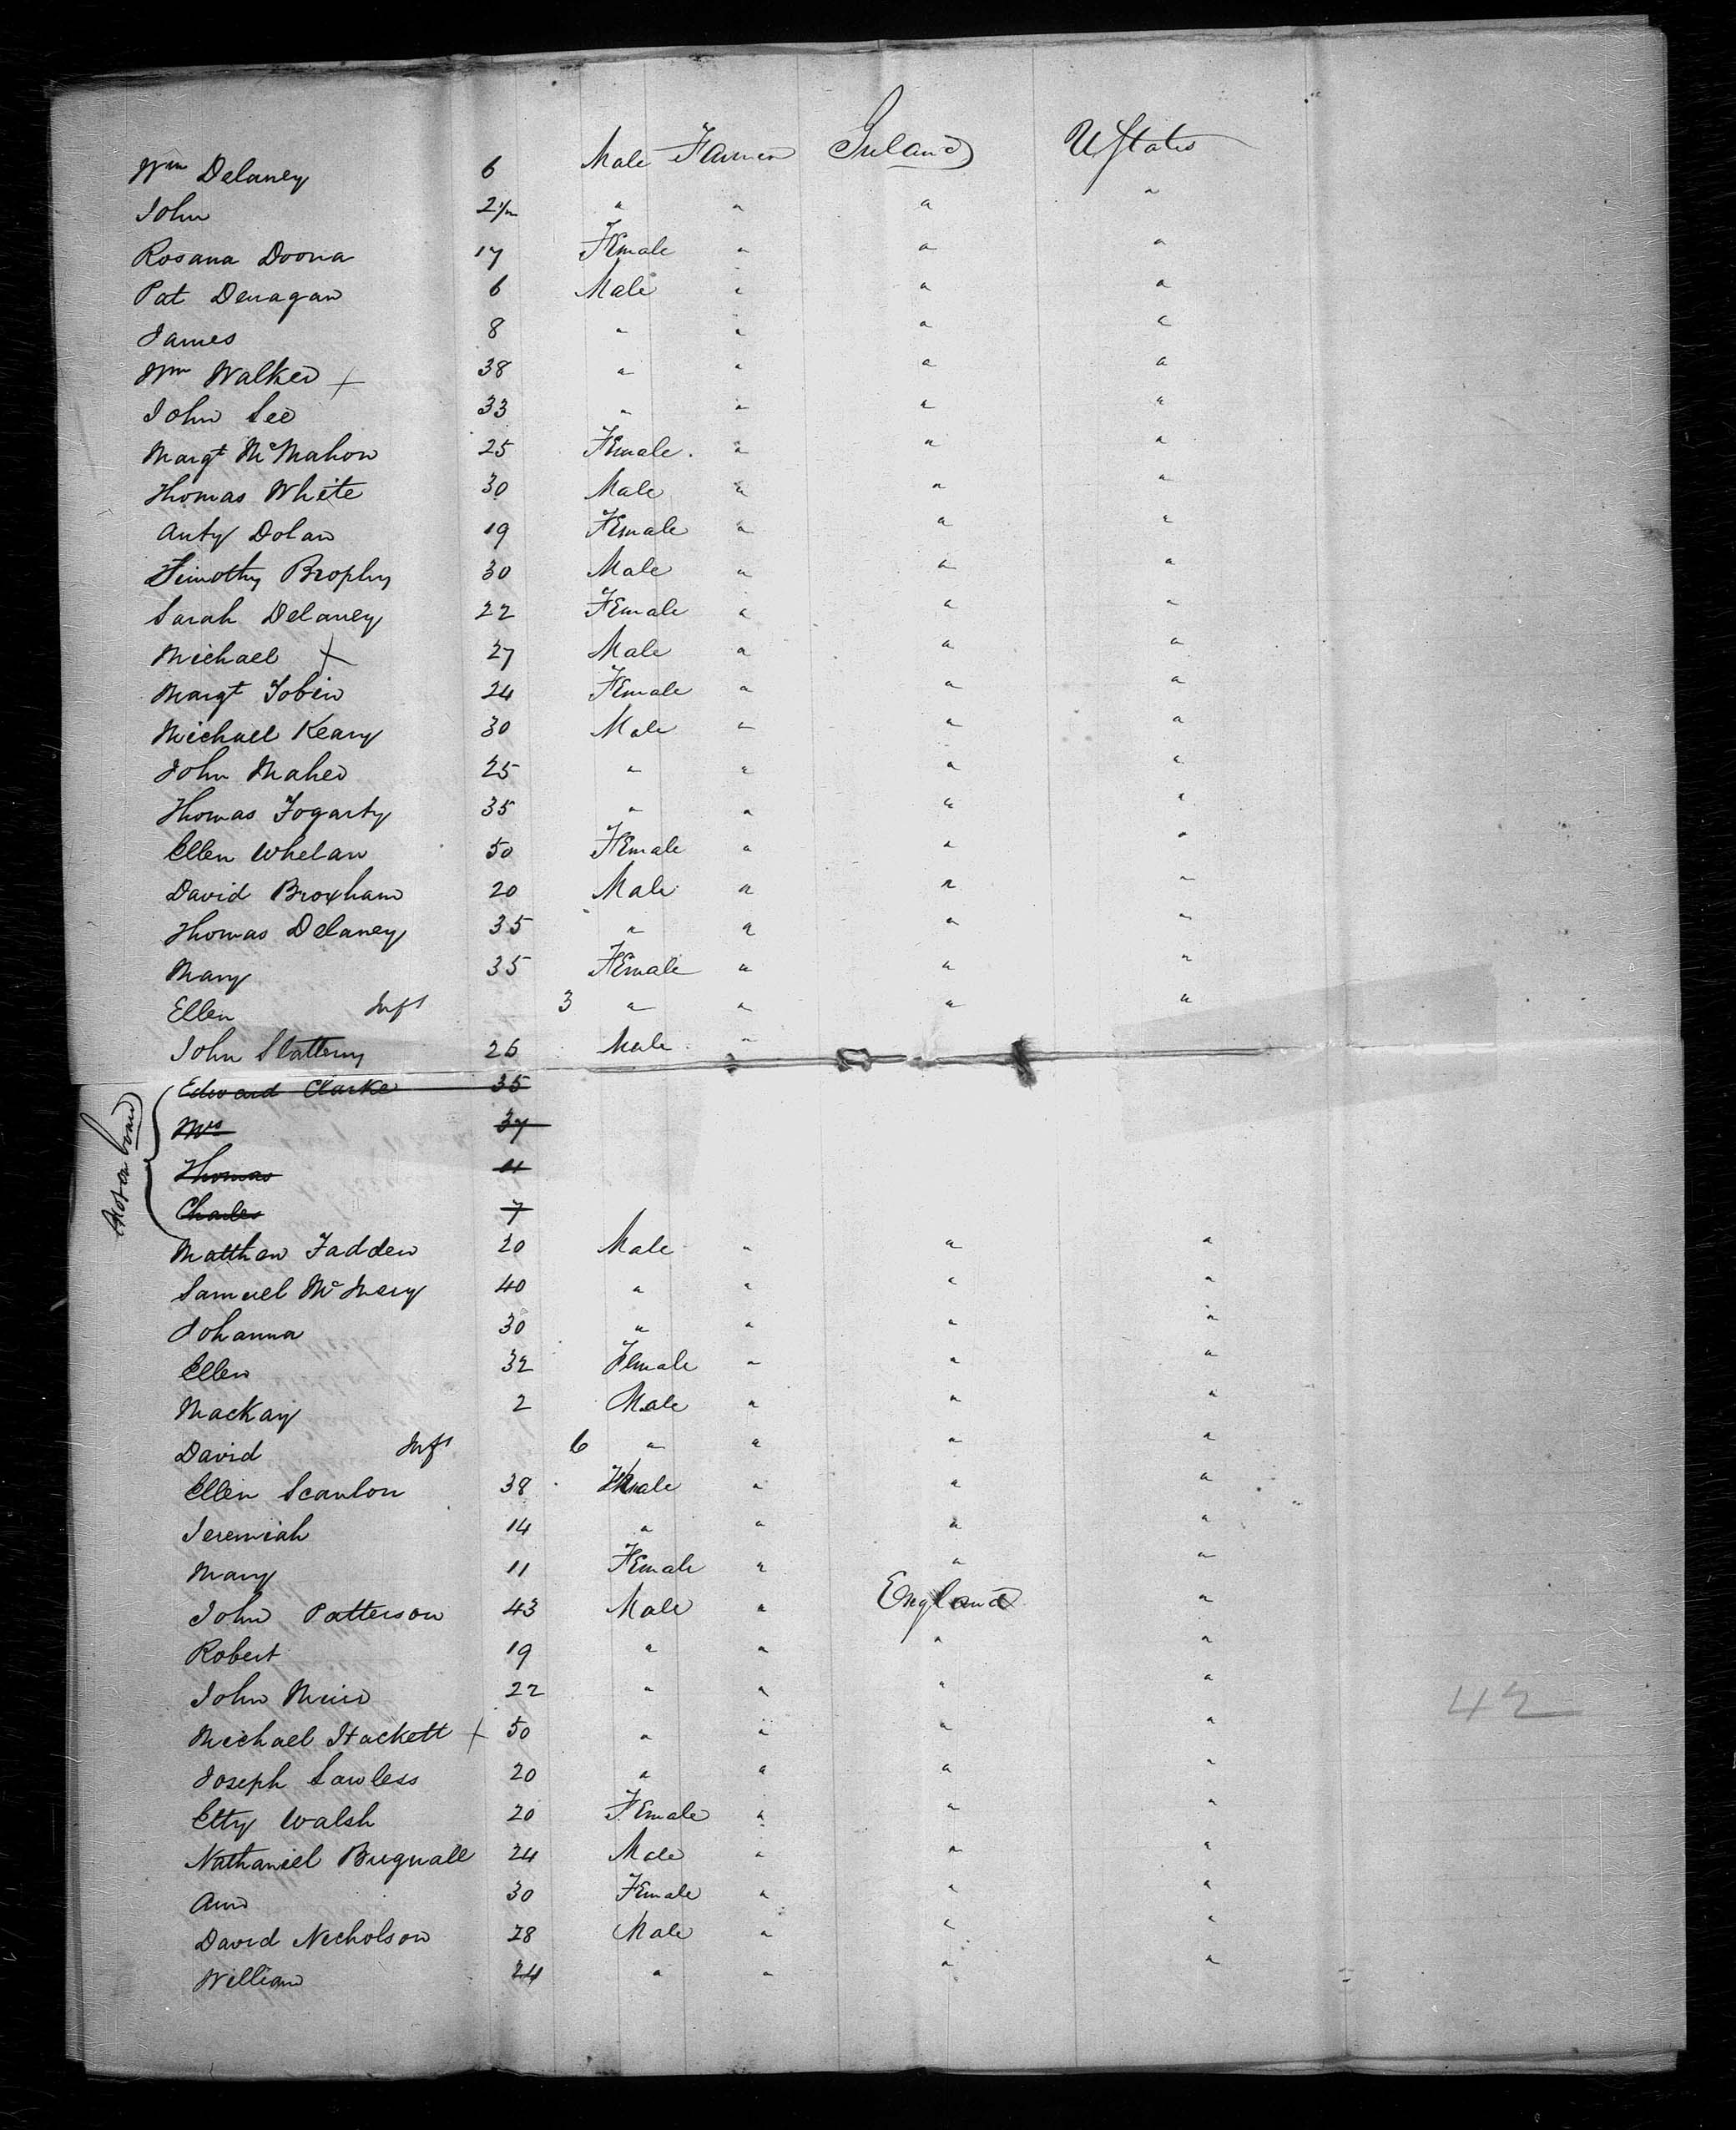 Wm Delaney 6 Male Farmer Ireland U States
John 2 1/2 " " " "
Rosana Doona 17 Female " " "
Pat Denagan 6 Male " " "
James 8 " " " "
Wm Walker + 38 " " " "
John Lee 33 " " " "
Margt McMahon 25 Female " " "
Thomas White 30 Male " " "
Anty Dolan 19 Female " " "
Timothy Brophy 30 Male " " "
Sarah Delaney 22 Female " " "
Michael + 27 Male " " "
Margt Tobin 24 Female " " "
Michael Keary 30 Male " " "
John Maher 25 " " " "
Thomas Fogarty 35 " " " "
Ellen Whelan 50 Female " " "
David Broxham 20 Male " " "
Thomas Delaney 35 " " " "
Mary 35 Female " " "
Ellen Inft 3 " " " "
John Slattery 26 Male "
Not on board
Edward Clarke 35
Mrs 37
Thomas 11
Charles 7
Matthew Fadden 20 Male " " "
Samuel 40 " " " "
Johanna 30 " " " "
Ellen 32 Female " " "
Mackay 2 Male " " "
David Inft 6 " " " "
Ellen Scanlon 38 " " "
Jeremiah 14 " " " "
Mary 11 Female " " "
John Patterson 43 Male " England "
Robert 19 " " " "
John Muir 22 " " " "
Michael Hackett + 50 " " " "
Joseph Lawless 20 " " " "
Etty Walsh 20 Female " " "
Nathaniel Bugnall 24 Male " " "
Ann 30 Female " " "
David Nicholson 28 Male " " "
William 24 " " " "
42